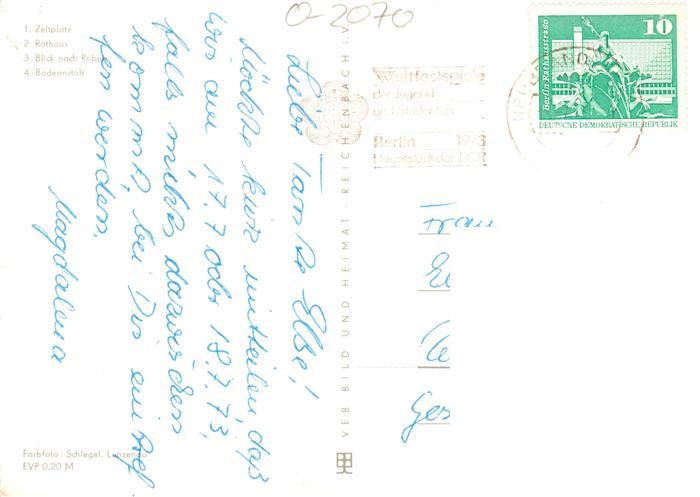 1. Zeltplatz
2. Rathaus
3. Blick nach Röbel
4. Badeanstalt
O-2070
Weltfestspiele
der Jugend
und Studenten
Berlin 1973
Hauptstadt der DDR
10
Berlin, Rathausstraße
DEUTSCHE DEMOKRATISCHE REPUBLIK
Liebe Tante Else!
Möchte kurz mitteilen, daß
wir am 17.7 oder 18.7.73,
falls nichts dazwischen
kommt, bei Dir eintref-
fen werden.
Magdalena
VEB BILD UND HEIMAT · REICHENBACH i.V.
Frau
El
Ges
Farbfoto: Schlegel,
EVP 0,20 M